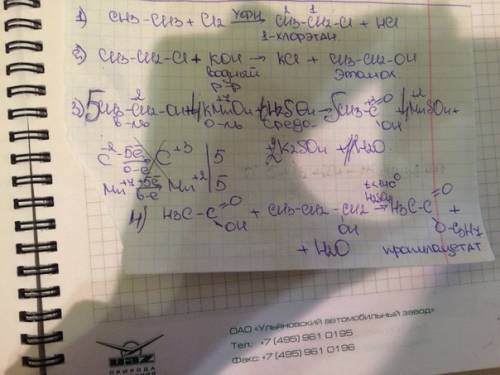 1) CH3-CH3 + Cl2 УФЛ CH3-CH2-Cl + HCl
2 1
1-хлорэтан
2) CH3-CH2-Cl + KOH → KCl + CH3-CH2-OH
водный этанол
р-р
3) 5CH3-CH2-OH + 4KMnO4 + H2SO4 → 5CH3-C=O + 4MnSO4 +
OH
в-ль о-ль среда
2K2SO4 + H2O
C-2 -5e C+3 | 5
Mn+7 +5e Mn+2 | 5
4) H3C-C=O + CH3-CH2-CH2 → H3C-C=O +
OH OH H2SO4 O-C3H7
+ H2O пропилацетат
ОАО «Ульяновский автомобильный завод»
Тел.: +7 (495) 961 0195
Факс: +7 (495) 961 0196
UAZ
ПРИРОДА